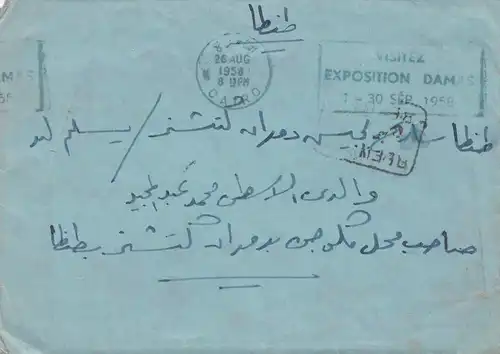 طنطا
القاهرة
26 AUG
1958
8 PM
CAIRO
VISITEZ
EXPOSITION DAMAS
1 - 30 SEP. 1958
DAMAS
958
طنطا / دوران كتشنر / يسلم ليد
والدى الاسطى محمد عبد المجيد
صاحب محل مكوجى بدوران كتشنر بطنطا